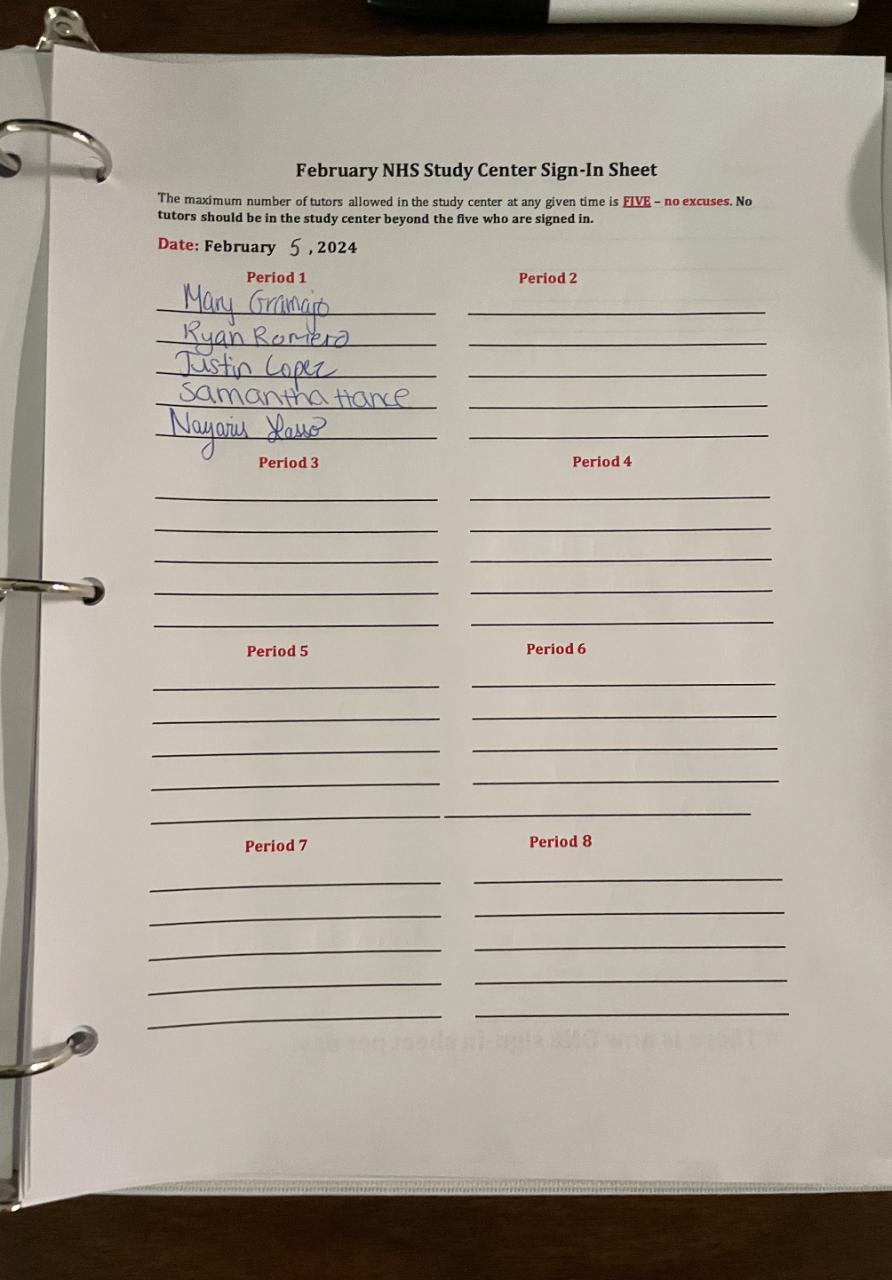 February NHS Study Center Sign-In Sheet
The maximum number of tutors allowed in the study center at any given time is FIVE – no excuses. No
tutors should be in the study center beyond the five who are signed in.
Date: February 5, 2024
Period 1
Mary Gramajo
Ryan Romero
Justin Lopez
Samantha Hance
Nayaris Lasso
Period 2
Period 3
Period 4
Period 5
Period 6
Period 7
Period 8